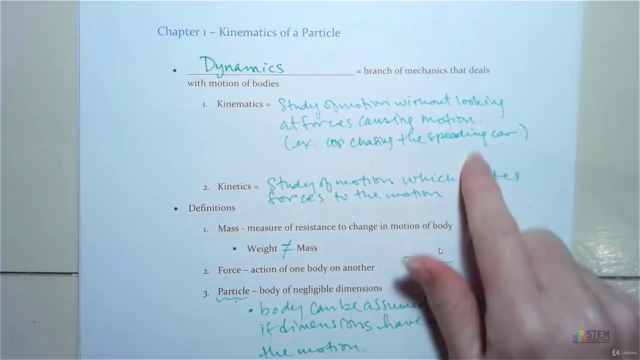 Chapter 1 – Kinematics of a Particle
• Dynamics = branch of mechanics that deals
with motion of bodies
1. Kinematics = Study of motion without looking
at forces causing motion.
(ex. cop chasing the speeding car)
2. Kinetics = Study of motion which
forces to the motion
• Definitions
1. Mass - measure of resistance to change in motion of body
• Weight ≠ Mass
2. Force – action of one body on another
3. Particle – body of negligible dimensions
• body can be
if dimensions have
the motion.
STEM
Udemy